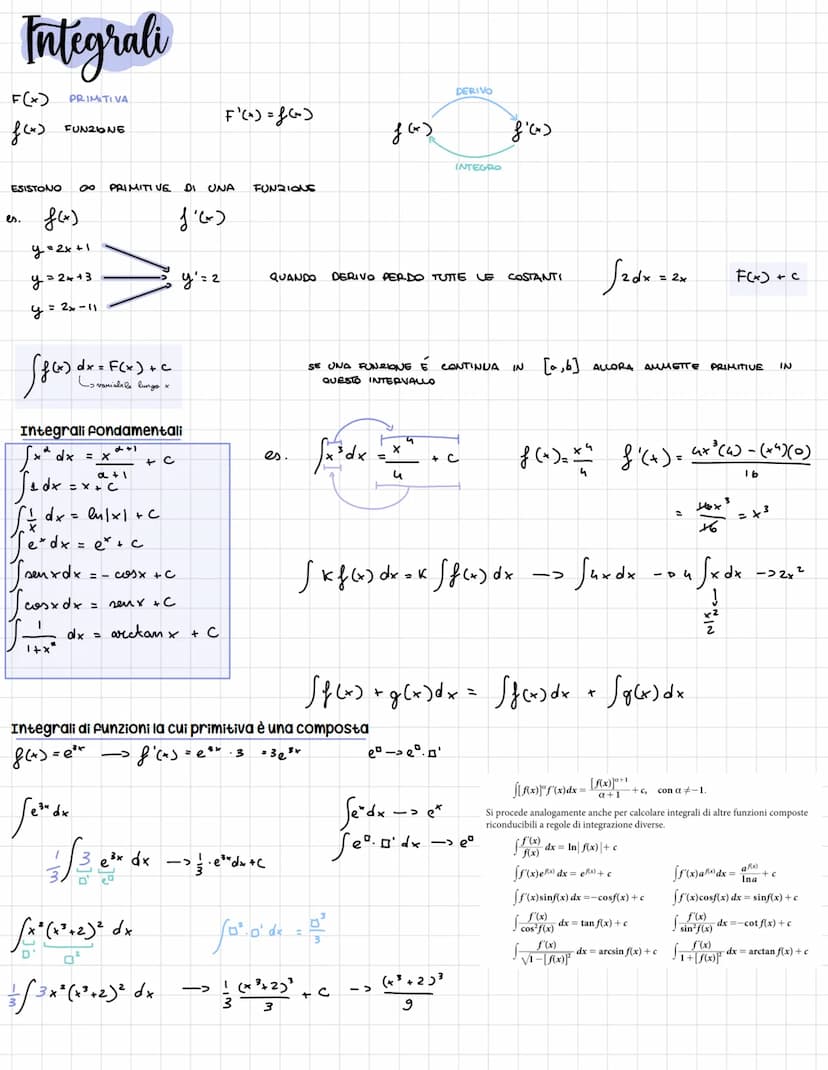 Integrali
F(x) PRIMITIVA
f(x) FUNZIONE
F'(x) = f(x)
DERIVO
f(x) f'(x)
INTEGRO
ESISTONO ∞ PRIMITIVE DI UNA FUNZIONE
es. f(x) f'(x)
y = 2x + 1
y = 2x + 3 y' = 2 QUANDO DERIVO PERDO TUTTE LE COSTANTI ∫2dx = 2x F(x) + c
y = 2x - 11
∫f(x) dx = F(x) + c
↳ variabile lungo x
SE UNA FUNZIONE É CONTINUA IN [a,b] ALLORA AMMETTE PRIMITIVE IN
QUESTO INTERVALLO
Integrali fondamentali
∫x^α dx = x^(α+1)/(α+1) + C
∫1 dx = x + C
∫1/x dx = ln|x| + C
∫e^x dx = e^x + C
∫senx dx = - cosx + C
∫cosx dx = senx + C
∫1/(1+x²) dx = arctan x + C
es. ∫x³dx = x⁴/4 + C f(x) = x⁴/4 f'(x) = (4x³(4) - (x⁴)(0))/16
= 16x³/16 = x³
∫K f(x) dx = K ∫f(x) dx —> ∫4x dx —> 4 ∫x dx -> 2x²
↓
x²/2
∫f(x) + g(x) dx = ∫f(x) dx + ∫g(x) dx
Integrali di funzioni la cui primitiva è una composta
f(x) = e^3x —> f'(x) = e^3x · 3 = 3e^3x e^□ -> e^□ · □'
∫e^3x dx
1/3 ∫3 e^3x dx -> 1/3 · e^3x dx + C
□' e^□
∫e^x dx -> e^x
∫e^□ · □' dx -> e^□
∫x²(x³+2)² dx ∫□² · □' dx = □³/3
□' □²
1/3 ∫3x²(x³+2)² dx —> 1/3 (x³+2)³/3 + C -> (x³+2)³/9
∫[f(x)]^α f'(x)dx = [f(x)]^(α+1)/(α+1) + c, con α ≠ −1.
Si procede analogamente anche per calcolare integrali di altre funzioni composte
riconducibili a regole di integrazione diverse.
∫f'(x)/f(x) dx = ln|f(x)| + c
∫f'(x)e^f(x) dx = e^f(x) + c ∫f'(x)a^f(x) dx = a^f(x)/lna + c
∫f'(x)sinf(x) dx = −cosf(x) + c ∫f'(x)cosf(x) dx = sinf(x) + c
∫f'(x)/cos²f(x) dx = tan f(x) + c ∫f'(x)/sin²f(x) dx = −cot f(x) + c
∫f'(x)/√(1−[f(x)]²) dx = arcsin f(x) + c ∫f'(x)/(1+[f(x)]²) dx = arctan f(x) + c